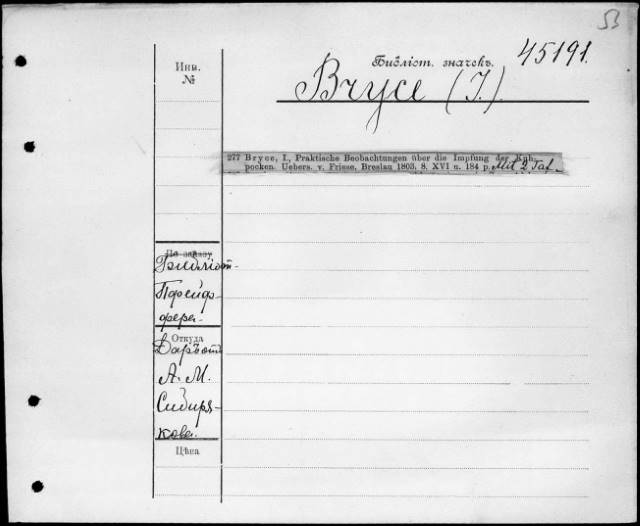 53
Библіот. значекъ. 45191.
Инв.
№
Bryce (J.)
277 Bryce, I., Praktische Beobachtungen über die Impfung der Kuh-
pocken. Uebers. v. Friese. Breslau 1803. 8. XVI u. 184 p. Mit 2 Taf.
По заказу
Библіот.
Пфейф-
фера.
Откуда
Даръ отъ
А. М.
Сибиря-
кова.
Цѣна